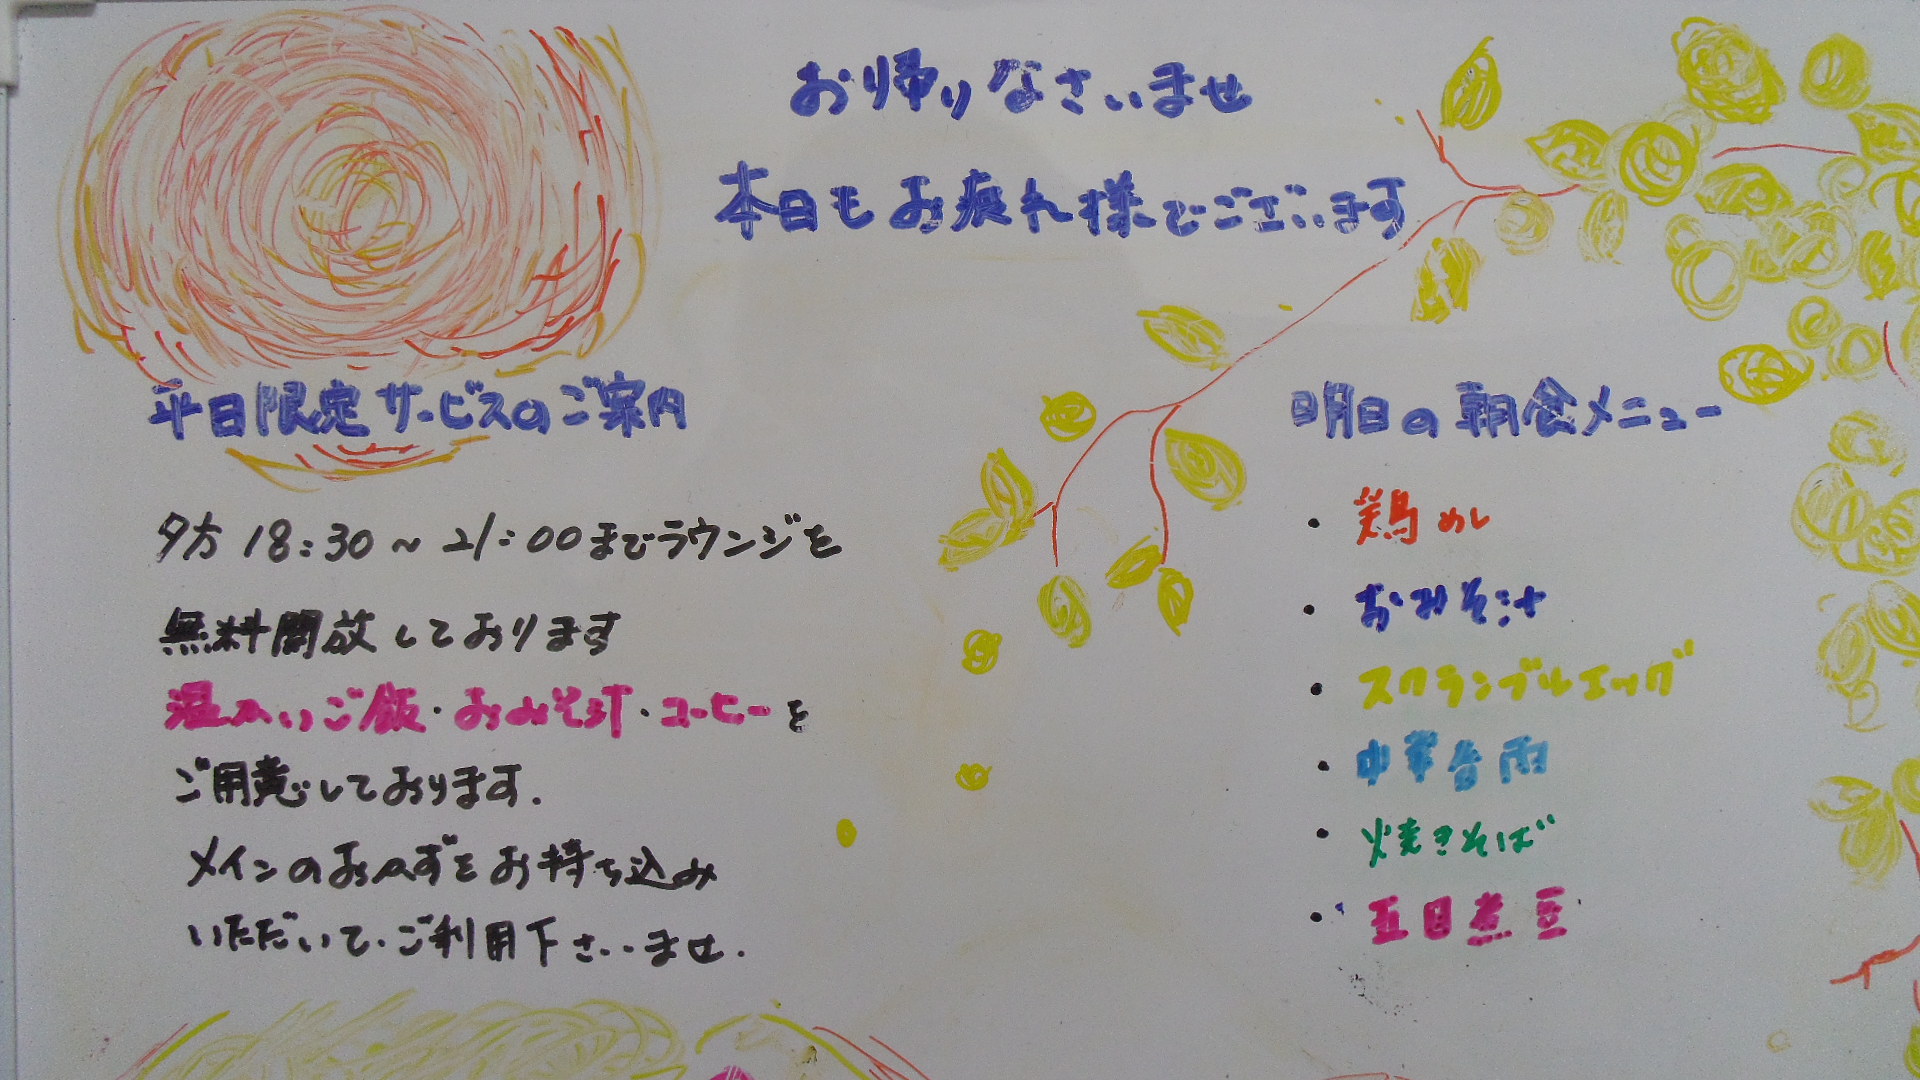 お帰りなさいませ
本日もお疲れ様でございます
平日限定サービスのご案内
夕方 18:30～21:00までラウンジを
無料開放しております
温かいご飯・おみそ汁・コーヒーを
ご用意しております.
メインのおかずをお持ち込み
いただいて.ご利用下さいませ.
明日の朝食メニュー
・鶏めし
・おみそ汁
・スクランブルエッグ
・中華春雨
・焼きそば
・五目煮豆